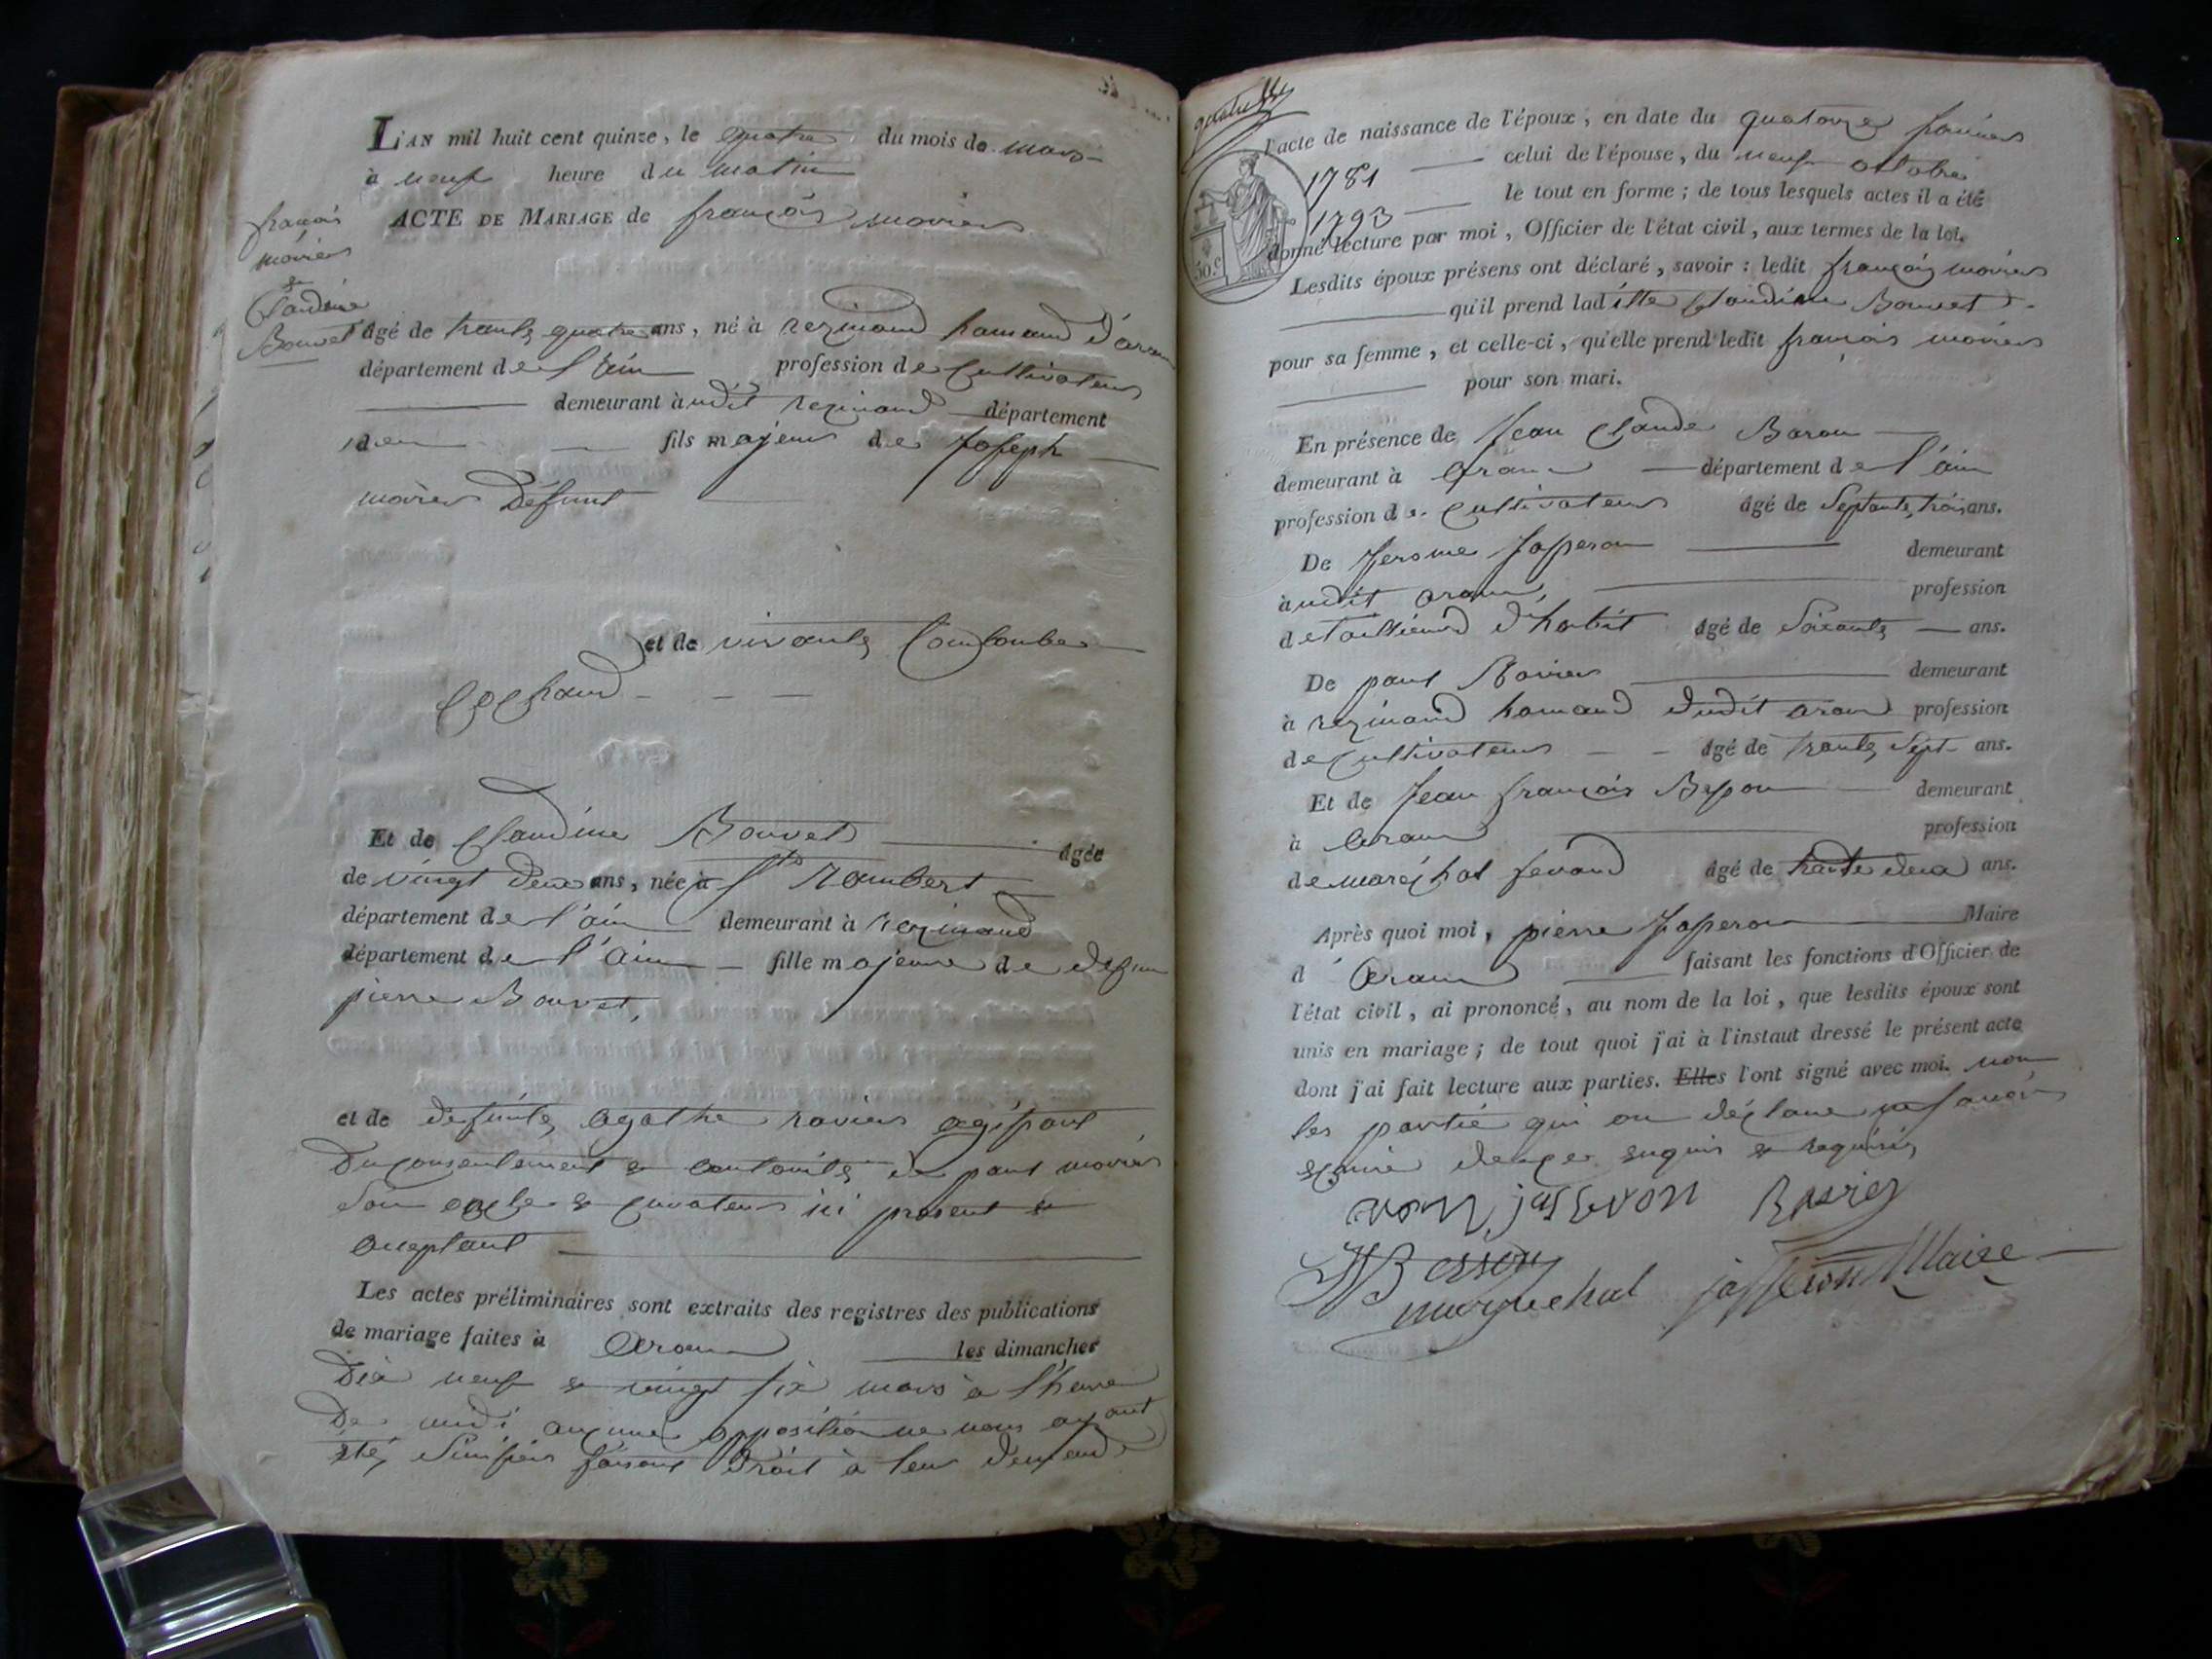 L'AN mil huit cent quinze, le quatre du mois de mars
à neuf heure du matin
ACTE DE MARIAGE de françois moviers
françois
moviers
&
Claudine
Bouvet
âgé de trante quatre ans, né à rezinand hamaud d'aran
département de l'ain profession de Cultivateur
demeurant àudit rezinand département
idem fils majeur de Joseph
moviers Défunt
et de vivante Coulombe
Cochaud
Et de Claudine Bouvet âgée
de vingt deux ans, née à St Rambert
département de l'ain demeurant à rezinand
département de l'Ain fille majeure de defun
pierre Bouvet,
et de defunte agathe raviers agissant
Du consentement & l'autorité de paul
son oncle & curateur ici present &
acceptant
Les actes préliminaires sont extraits des registres des publications
de mariage faites à Aran les dimanches
Dix neuf & vingt six mars à l'heure
De midi aucune opposition ne nous ayant
été, Signifiée faisant Droit à leur demande
l'acte de naissance de l'époux, en date du quatorze janvier
1781 celui de l'épouse, du neuf octobre
1793 le tout en forme; de tous lesquels actes il a été
donné lecture par moi, Officier de l'état civil, aux termes de la loi.
50 c
Lesdits époux présens ont déclaré, savoir: ledit françois moviers
qu'il prend laditte Claudine Bouvet
pour sa femme, et celle-ci, qu'elle prend ledit françois moviers
pour son mari.
En présence de Jean Claude Baron
demeurant à Aran département de l'ain
profession de Cultivateur âgé de Septante trois ans.
De Jerome Josseron demeurant
àudit aran, profession
de tailleurd d'habit âgé de Soixante ans.
De paul Raviers demeurant
à rezinand hamaud dudit aran profession
de Cultivateur âgé de trante Sept ans.
Et de Jean françois Besson demeurant
à Aran profession
de maréchal ferand âgé de trante deux ans.
Après quoi moi, pierre Josseron Maire
d'Aran faisant les fonctions d'Officier de
l'état civil, ai prononcé, au nom de la loi, que lesdits époux sont
unis en mariage; de tout quoi j'ai à l'instaut dressé le présent acte
dont j'ai fait lecture aux parties. Elles l'ont signé avec moi. non
les partie qui on déclaré ne savoir
de ce enquis & requis
josseron Ravier
Besson
josseron Maire